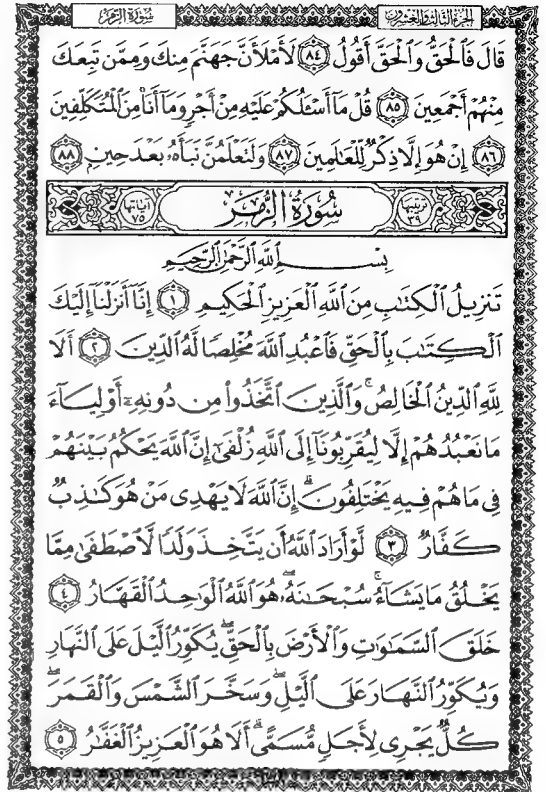 سُورَةُ الزُّمَرِ
الجزء الثالث والعشرون
قَالَ فَٱلْحَقُّ وَٱلْحَقَّ أَقُولُ ﴿٨٤﴾ لَأَمْلَأَنَّ جَهَنَّمَ مِنكَ وَمِمَّن تَبِعَكَ
مِنْهُمْ أَجْمَعِينَ ﴿٨٥﴾ قُلْ مَآ أَسْـَٔلُكُمْ عَلَيْهِ مِنْ أَجْرٍ وَمَآ أَنَا۠ مِنَ ٱلْمُتَكَلِّفِينَ
﴿٨٦﴾ إِنْ هُوَ إِلَّا ذِكْرٌ لِّلْعَـٰلَمِينَ ﴿٨٧﴾ وَلَتَعْلَمُنَّ نَبَأَهُۥ بَعْدَ حِينٍۭ ﴿٨٨﴾
ترتيبها ٣٩ سُورَةُ الزُّمَرِ آياتها ٧٥
بِسْمِ ٱللَّهِ ٱلرَّحْمَـٰنِ ٱلرَّحِيمِ
تَنزِيلُ ٱلْكِتَـٰبِ مِنَ ٱللَّهِ ٱلْعَزِيزِ ٱلْحَكِيمِ ﴿١﴾ إِنَّآ أَنزَلْنَآ إِلَيْكَ
ٱلْكِتَـٰبَ بِٱلْحَقِّ فَٱعْبُدِ ٱللَّهَ مُخْلِصًا لَّهُ ٱلدِّينَ ﴿٢﴾ أَلَا
لِلَّهِ ٱلدِّينُ ٱلْخَالِصُ ۚ وَٱلَّذِينَ ٱتَّخَذُوا۟ مِن دُونِهِۦٓ أَوْلِيَآءَ
مَا نَعْبُدُهُمْ إِلَّا لِيُقَرِّبُونَآ إِلَى ٱللَّهِ زُلْفَىٰٓ إِنَّ ٱللَّهَ يَحْكُمُ بَيْنَهُمْ
فِى مَا هُمْ فِيهِ يَخْتَلِفُونَ ۗ إِنَّ ٱللَّهَ لَا يَهْدِى مَنْ هُوَ كَـٰذِبٌ
كَفَّارٌ ﴿٣﴾ لَّوْ أَرَادَ ٱللَّهُ أَن يَتَّخِذَ وَلَدًا لَّٱصْطَفَىٰ مِمَّا
يَخْلُقُ مَا يَشَآءُ ۚ سُبْحَـٰنَهُۥ ۖ هُوَ ٱللَّهُ ٱلْوَٰحِدُ ٱلْقَهَّارُ ﴿٤﴾
خَلَقَ ٱلسَّمَـٰوَٰتِ وَٱلْأَرْضَ بِٱلْحَقِّ ۖ يُكَوِّرُ ٱلَّيْلَ عَلَى ٱلنَّهَارِ
وَيُكَوِّرُ ٱلنَّهَارَ عَلَى ٱلَّيْلِ ۖ وَسَخَّرَ ٱلشَّمْسَ وَٱلْقَمَرَ ۖ
كُلٌّ يَجْرِى لِأَجَلٍ مُّسَمًّى ۗ أَلَا هُوَ ٱلْعَزِيزُ ٱلْغَفَّـٰرُ ﴿٥﴾